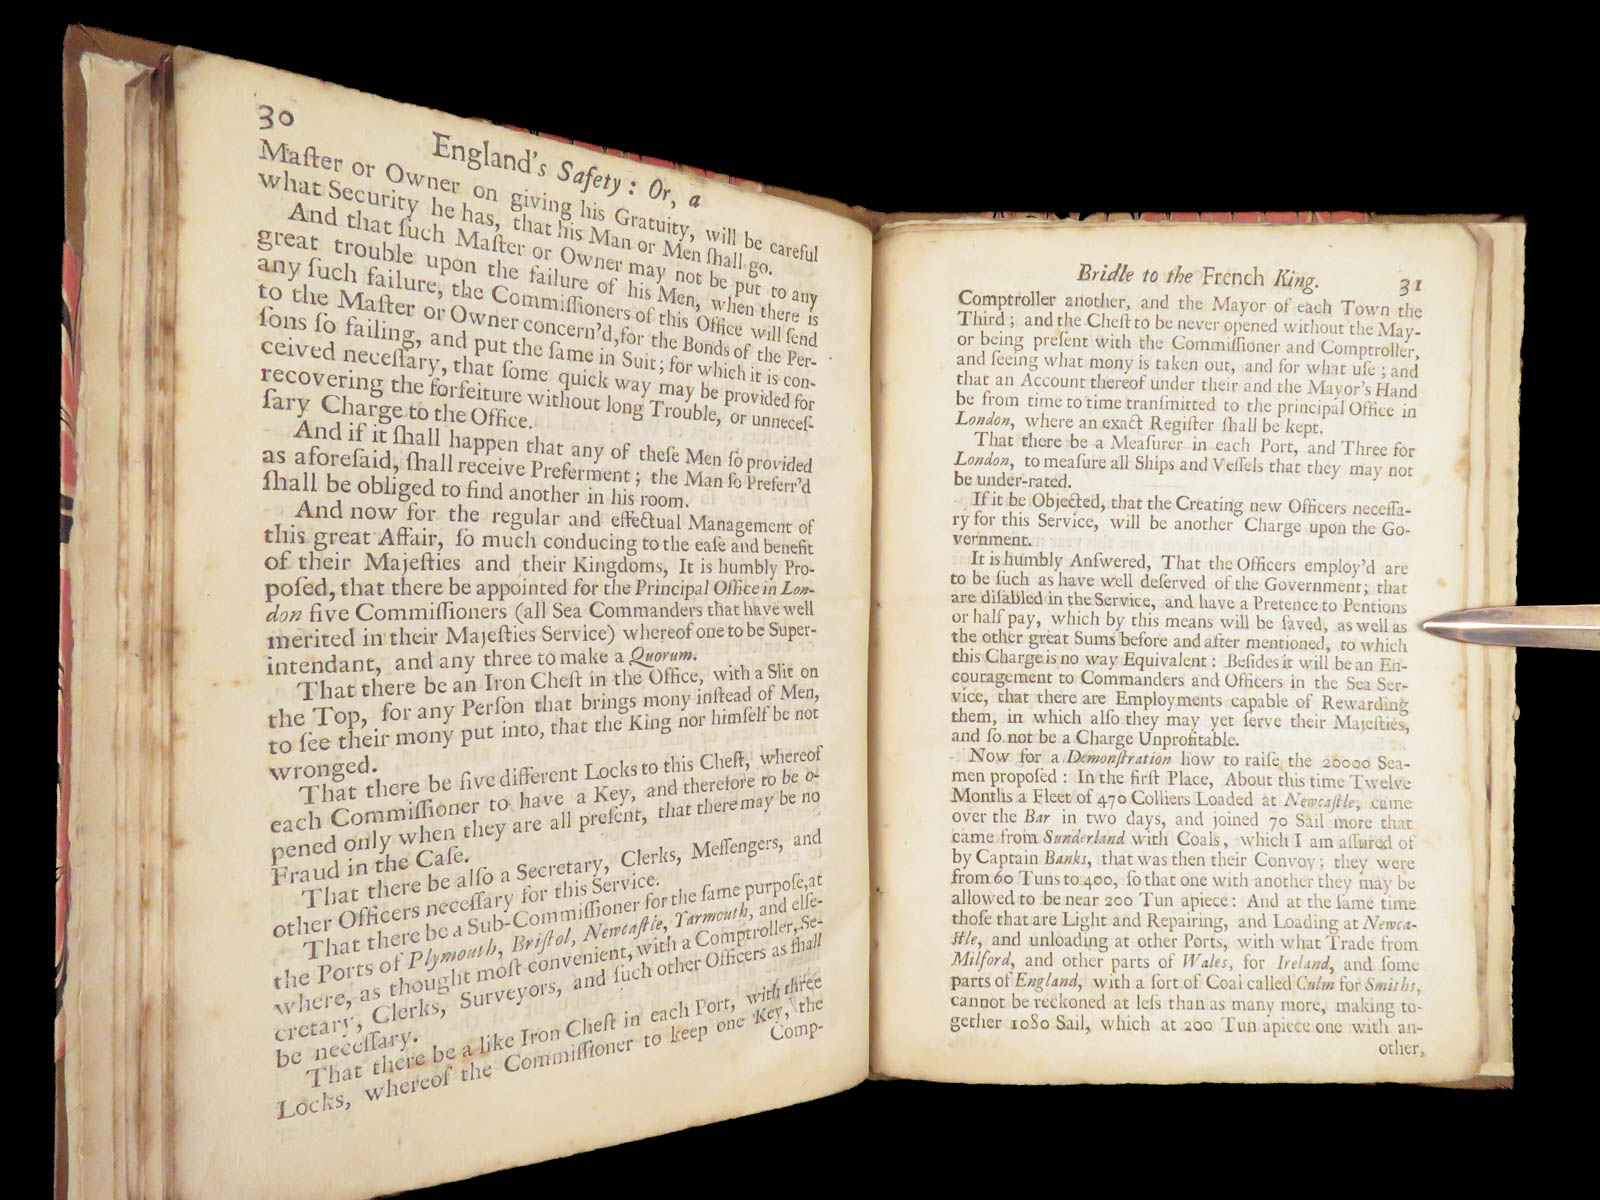 30
England's Safety: Or, a
Maſter or Owner on giving his Gratuity, will be careful
what Security he has, that his Man or Men ſhall go.
And that ſuch Maſter or Owner may not be put to any
great trouble upon the failure of his Men, when there is
any ſuch failure, the Commiſſioners of this Office will ſend
to the Maſter or Owner concern'd, for the Bonds of the Per-
ſons ſo failing, and put the ſame in Suit; for which it is con-
ceived neceſſary, that ſome quick way may be provided for
recovering the forfeiture without long Trouble, or unneceſ-
ſary Charge to the Office.
And if it ſhall happen that any of theſe Men ſo provided
as aforeſaid, ſhall receive Preferment; the Man ſo Preferr'd
ſhall be obliged to find another in his room.
And now for the regular and effectual Management of
this great Affair, ſo much conducing to the eaſe and benefit
of their Majeſties and their Kingdoms, It is humbly Pro-
poſed, that there be appointed for the Principal Office in Lon-
don five Commiſſioners (all Sea Commanders that have well
merited in their Majeſties Service) whereof one to be Super-
intendant, and any three to make a Quorum.
That there be an Iron Cheſt in the Office, with a Slit on
the Top, for any Perſon that brings mony inſtead of Men,
to ſee their mony put into, that the King nor himſelf be not
wronged.
That there be five different Locks to this Cheſt, whereof
each Commiſſioner to have a Key, and therefore to be o-
pened only when they are all preſent, that there may be no
Fraud in the Caſe.
That there be alſo a Secretary, Clerks, Meſſengers, and
other Officers neceſſary for this Service.
That there be a Sub-Commiſſioner for the ſame purpoſe, at
the Ports of Plymouth, Briſtol, Newcaſtle, Yarmouth, and elſe-
where, as thought moſt convenient, with a Comptroller, Se-
cretary, Clerks, Surveyors, and ſuch other Officers as ſhall
be neceſſary.
That there be a like Iron Cheſt in each Port, with three
Locks, whereof the Commiſſioner to keep one Key, the
Comp-
Bridle to the French King. 31
Comptroller another, and the Mayor of each Town the
Third; and the Cheſt to be never opened without the May-
or being preſent with the Commiſſioner and Comptroller,
and ſeeing what mony is taken out, and for what uſe; and
that an Account thereof under their and the Mayor's Hand
be from time to time tranſmitted to the principal Office in
London, where an exact Regiſter ſhall be kept.
That there be a Meaſurer in each Port, and Three for
London, to meaſure all Ships and Veſſels that they may not
be under-rated.
If it be Objected, that the Creating new Officers neceſſa-
ry for this Service, will be another Charge upon the Go-
vernment.
It is humbly Anſwered, That the Officers employ'd are
to be ſuch as have well deſerved of the Government; that
are diſabled in the Service, and have a Pretence to Pentions
or half pay, which by this means will be ſaved, as well as
the other great Sums before and after mentioned, to which
this Charge is no way Equivalent: Beſides it will be an En-
couragement to Commanders and Officers in the Sea Ser-
vice, that there are Employments capable of Rewarding
them, in which alſo they may yet ſerve their Majeſties,
and ſo not be a Charge Unprofitable.
Now for a Demonſtration how to raiſe the 20000 Sea-
men propoſed: In the firſt Place, About this time Twelve
Months a Fleet of 470 Colliers Loaded at Newcaſtle, came
over the Bar in two days, and joined 70 Sail more that
came from Sunderland with Coals, which I am aſſured of
by Captain Banks, that was then their Convoy; they were
from 60 Tuns to 400, ſo that one with another they may be
allowed to be near 200 Tun apiece: And at the ſame time
thoſe that are Light and Repairing, and Loading at Newca-
ſtle, and unloading at other Ports, with what Trade from
Milford, and other parts of Wales, for Ireland, and ſome
parts of England, with a ſort of Coal called Culm for Smiths,
cannot be reckoned at leſs than as many more, making to-
gether 1080 Sail, which at 200 Tun apiece one with an-
other,